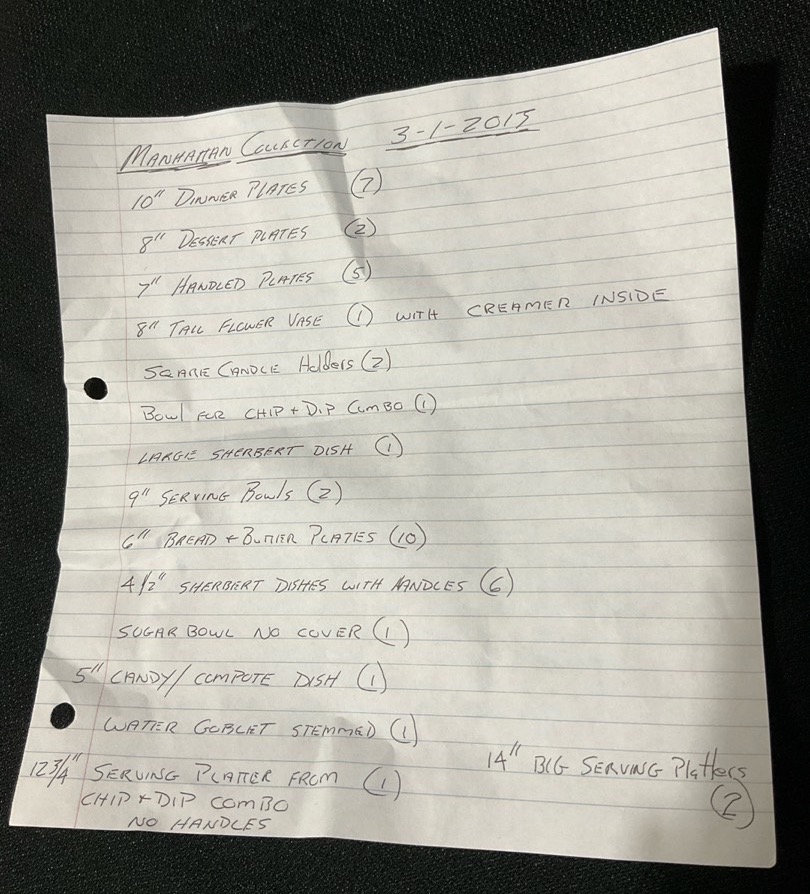 MANHATTAN COLLECTION 3-1-2015
10" DINNER PLATES (7)
8" DESSERT PLATES (2)
7" HANDLED PLATES (5)
8" TALL FLOWER VASE (1) WITH CREAMER INSIDE
SQARE CANDLE Holders (2)
Bowl FOR CHIP + DIP COMBO (1)
LARGE SHERBERT DISH (1)
9" SERVING Bowls (2)
6" BREAD + BUTTER PLATES (10)
4 1/2" SHERBERT DISHES WITH HANDLES (6)
SUGAR BOWL NO COVER (1)
5" CANDY/COMPOTE DISH (1)
WATER GOBLET STEMMED (1)
14" BIG SERVING Platters
(2)
12 3/4" SERVING PLATTER FROM (1)
CHIP + DIP COMBO
NO HANDLES